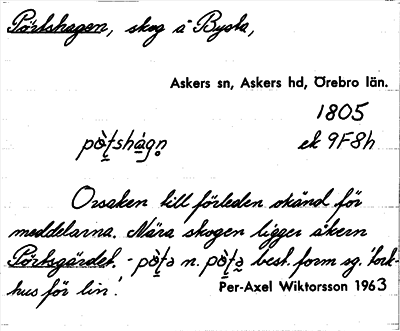 Pörtshagen, skog å Bysta,
Askers sn, Askers hd, Örebro län.
1805
pò̤ṭshá̤gn̥ ek 9F8h
Orsaken till förleden okänd för
meddelarna. Nära skogen ligger åkern
Pörtsgärdet. - pò̤ṭə n. pò̤ṭa̰ best. form sg. 'tork-
hus för lin'.
Per-Axel Wiktorsson 1963